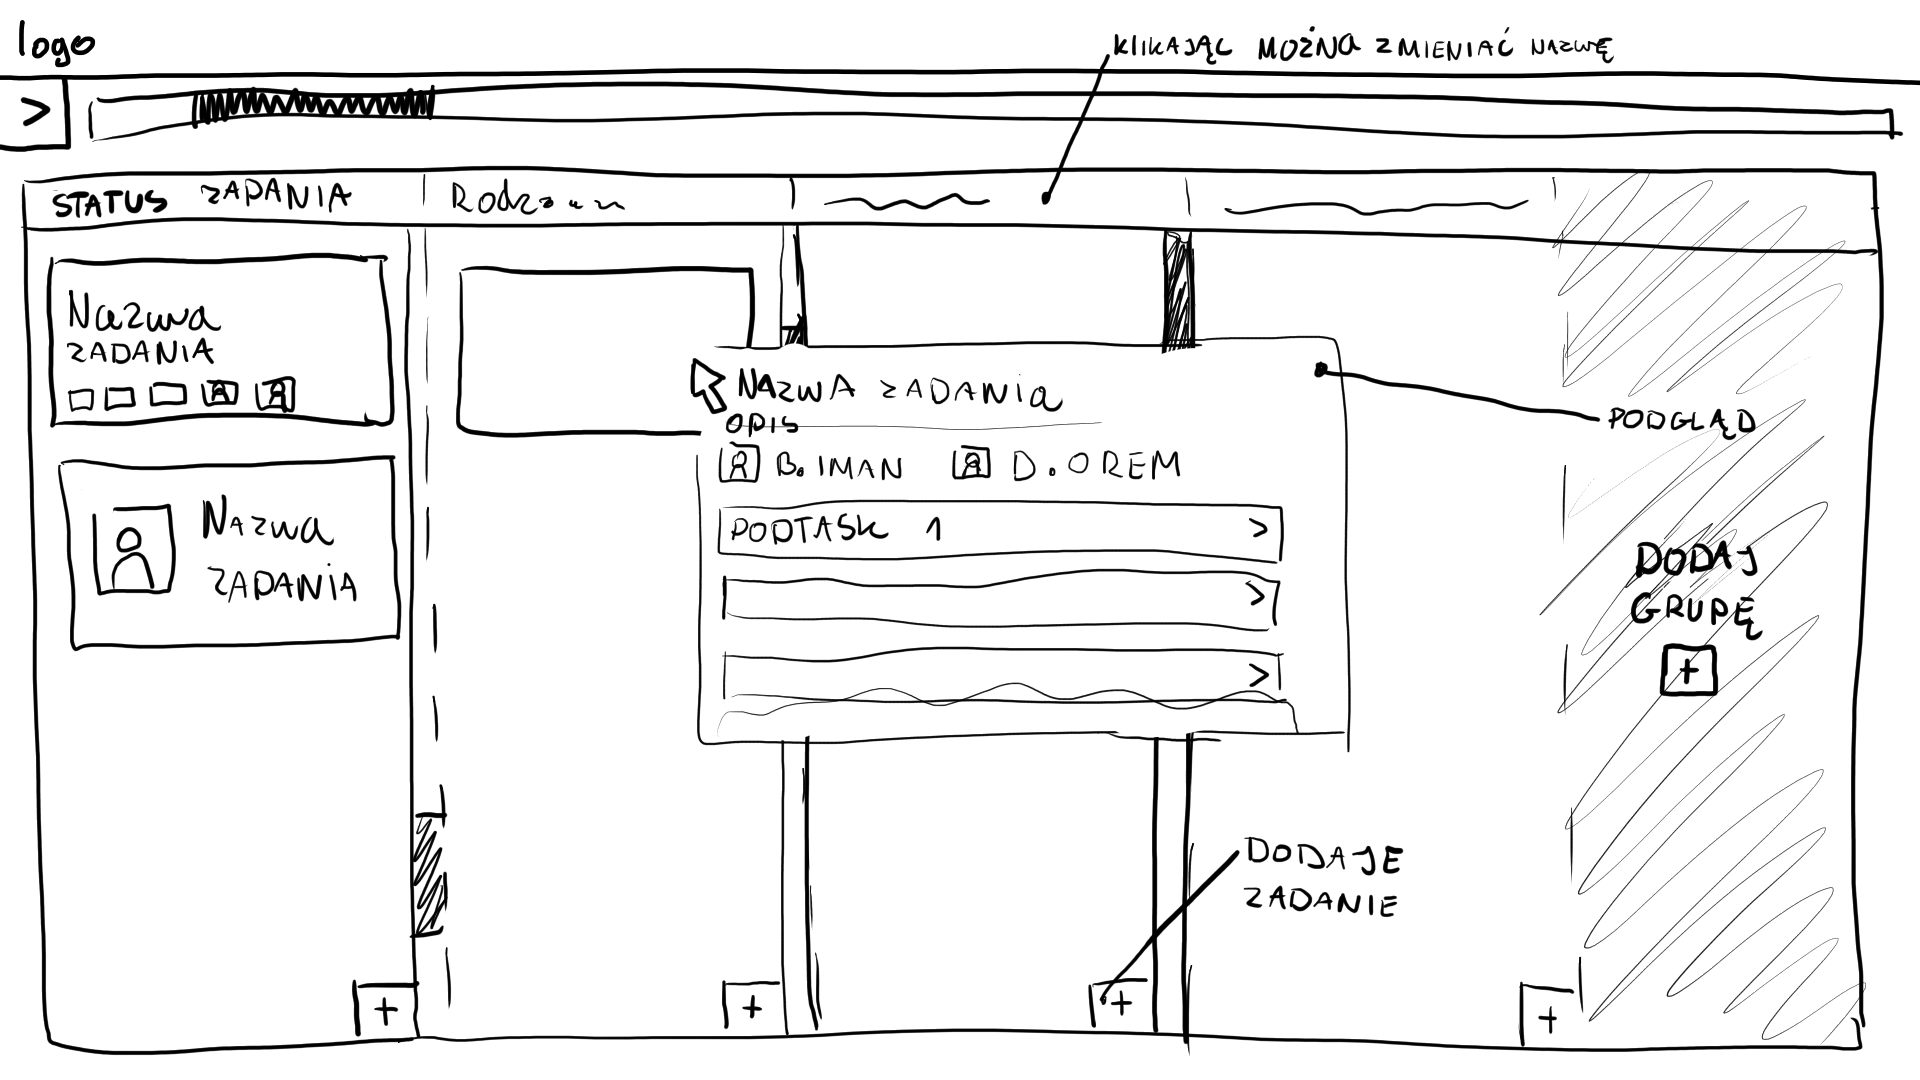 logo
KLIKAJĄC MOŻNA ZMIENIAĆ NAZWĘ
>
STATUS ZADANIA
Nazwa
ZADANIA
Nazwa
ZADANIA
NAZWA ZADANIA
OPIS
B. IMAN D. OREM
PODTASK 1 >
>
>
PODGLĄD
DODAJ
GRUPĘ
+
DODAJE
ZADANIE
+ + + +